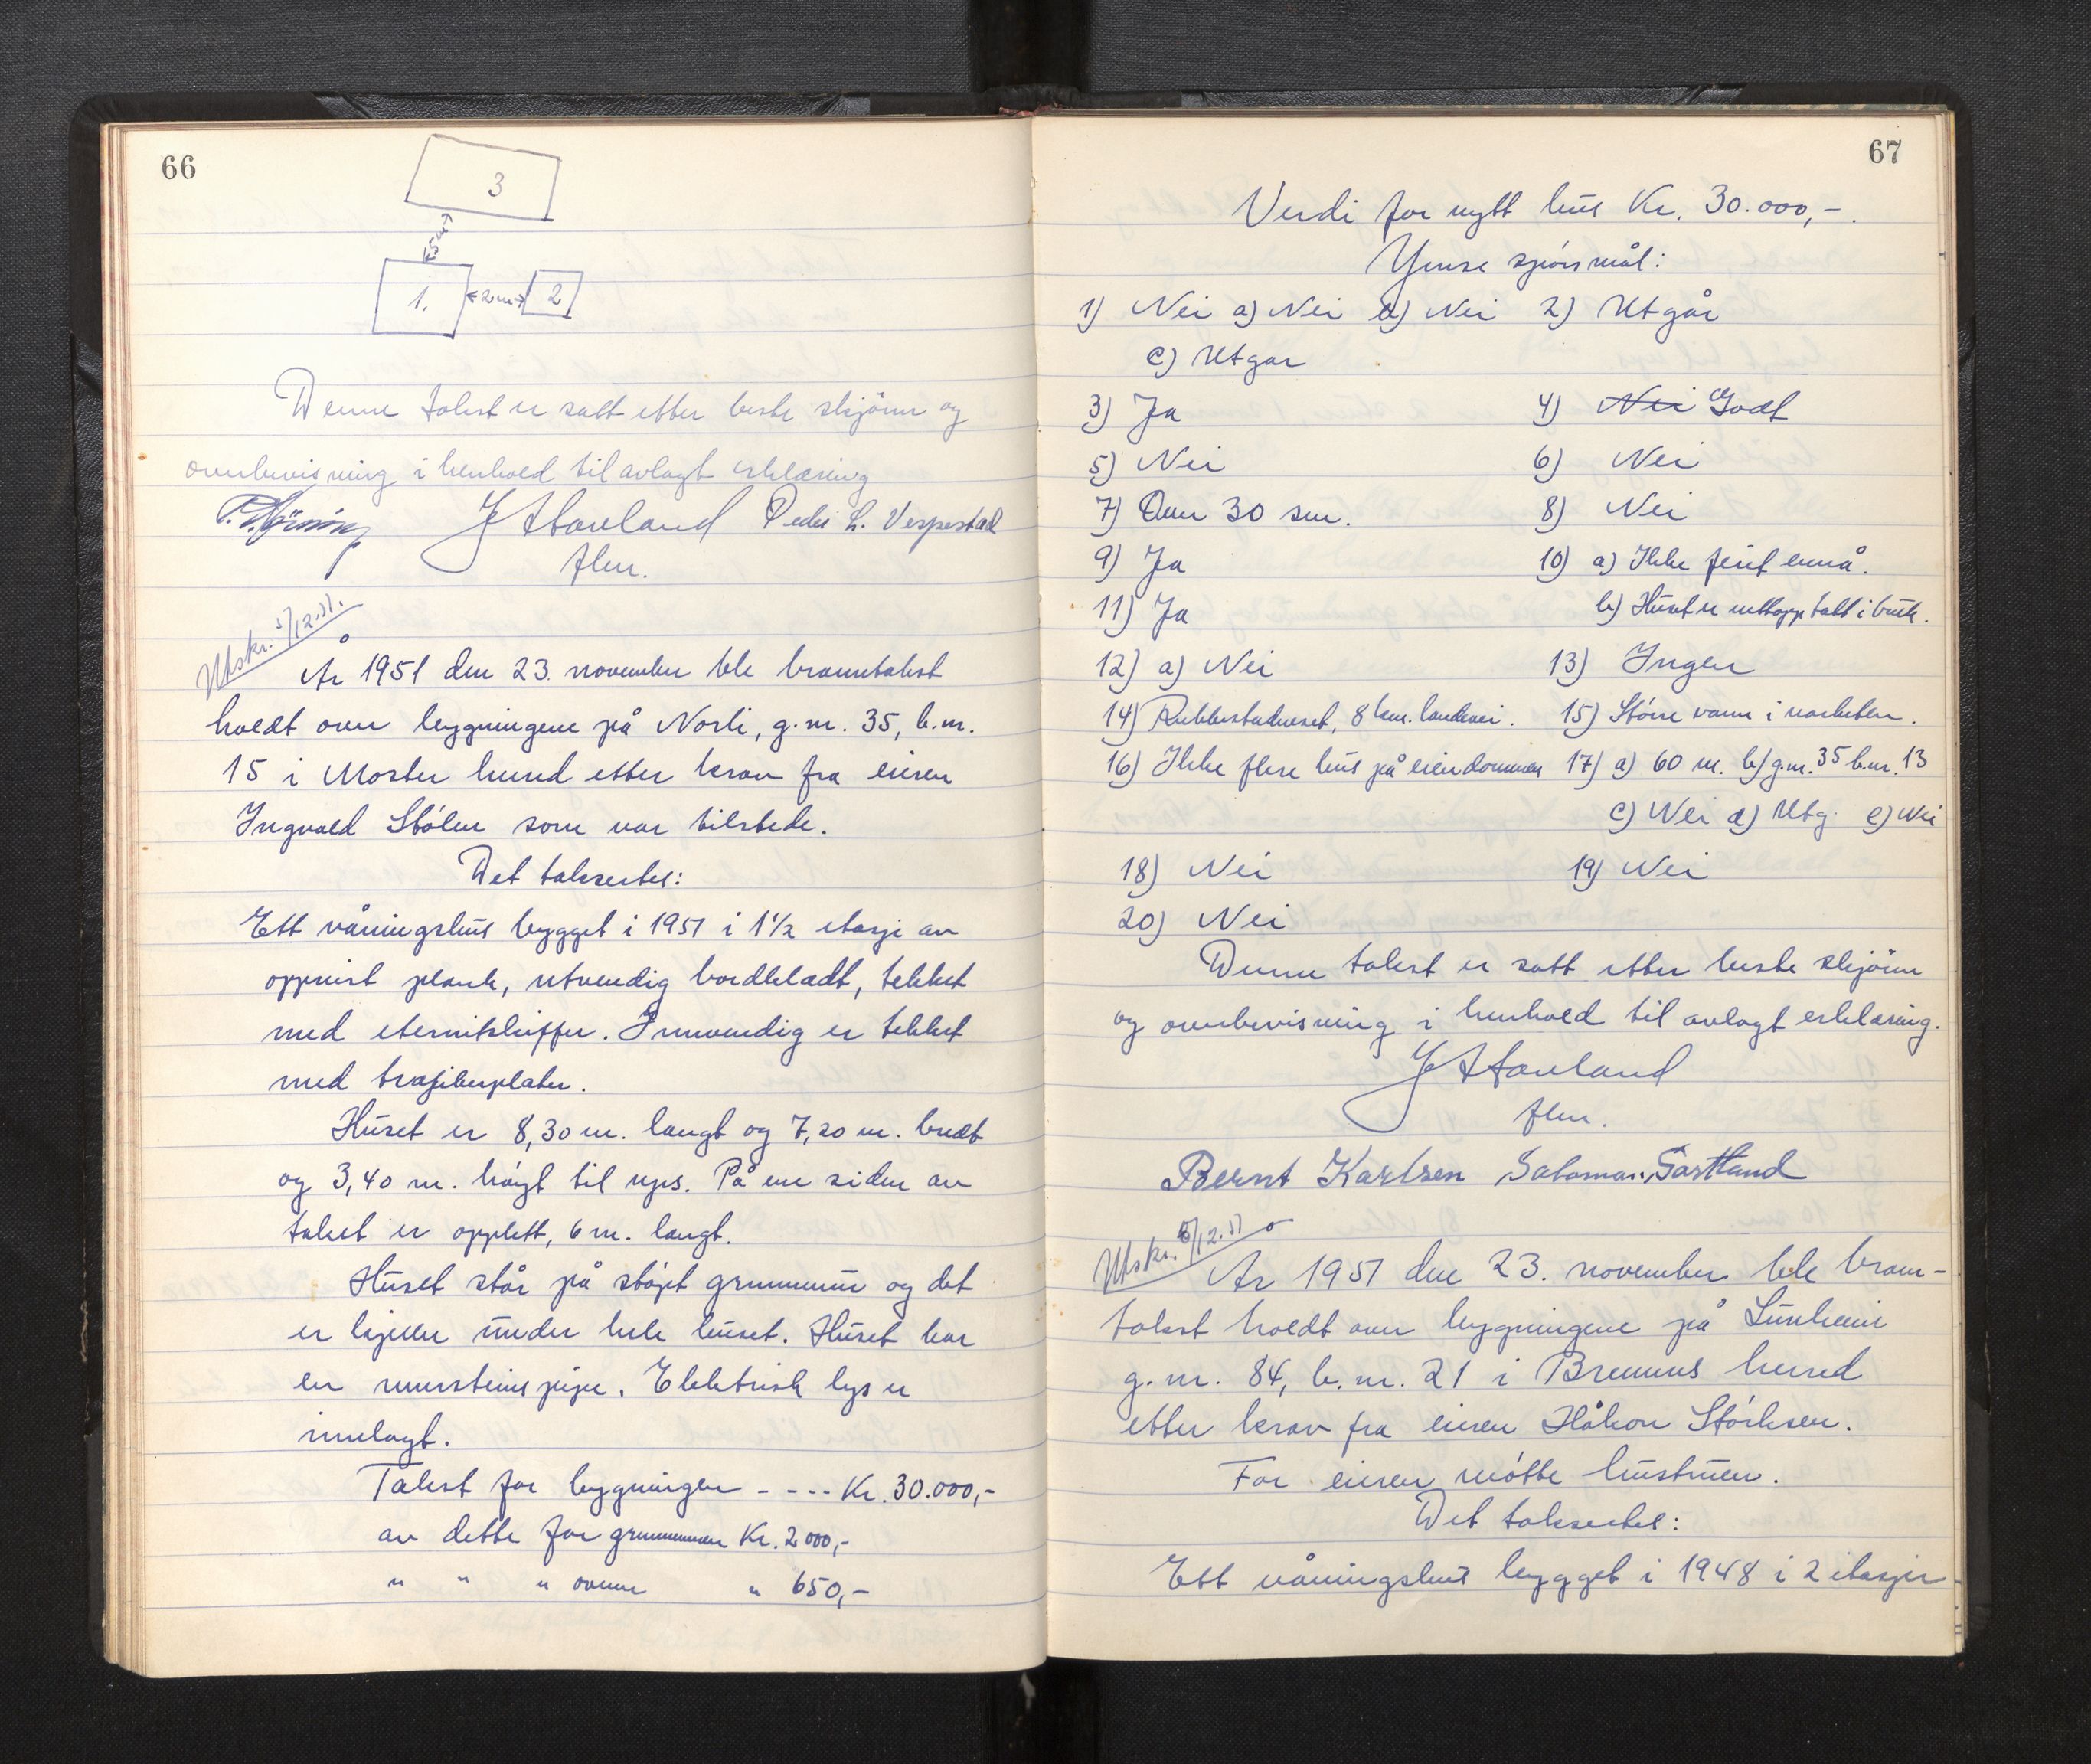 66
3
5m
1.
2m
2
Denne takst er satt etter beste skjönn og
overbevisning i henhold til avlagt erklæring
J Stavland Peder L. Vespestad
flm.
Utskr. 5/12.51.
År 1951 den 23. november ble branntakst
holdt over bygningene på Norli, g.nr. 35, b.nr.
15 i Moster herred etter krav fra eieren
Ingvald Stölen som var tilstede.
Det takseertes:
Ett våningshus bygget i 1951 i 1½ etasje av
oppreist plank, utvendig bordkledt, tekket
med eternitskiffer. Innvendig er tekket
med trefiberplater.
Huset er 8,30 m. langt og 7,20 m. bredt
og 3,40 m. høygt til ups. På ene siden av
taket er opplett, 6 m. langt.
Huset står på stöpt grunnmur og det
er kjeller under hele huset. Huset har
en murstenspipe. Elektrisk lys er
innlagt.
Takst for bygningen - - - - Kr. 30.000,-
av dette for grunnmuren Kr. 2000,-
" " " ovner " 650,-
67
Verdi for nytt hus Kr. 30.000,-.
Ymse spörsmål:
1) Nei a) Nei b) Nei 2) Utgår
c) Utgår
3) Ja 4) Nei Godt
5) Nei 6) Nei
7) Over 30 sm. 8) Nei
9) Ja 10) a) Ikke feiet ennå.
11) Ja b) Huset er nettopp tatt i bruk.
12) a) Nei 13) Ingen
14) Rubbestadneset, 8 km. landevei. 15) Större vann i nærheten.
16) Ikke flere hus på eiendommen 17) a) 60 m. b) g.nr. 35 b.nr. 13
c) Nei d) Utg. e) Nei
18) Nei 19) Nei
20) Nei
Denne takst er satt etter beste skjönn
og overbevisning i henhold til avlagt erklæring.
J Stavland
flm.
Bernt Karlsen Salomon Gåsland
Utskr. 5/12.51
År 1951 den 23. november ble brann-
takst holdt over bygningene på Lunheim
g.nr. 84, b.nr. 21 i Bremnes herred
etter krav fra eieren Håkon Störksen.
For eieren mötte hustruen.
Det takseertes:
Ett våningshus bygget i 1948 i 2 etasjer